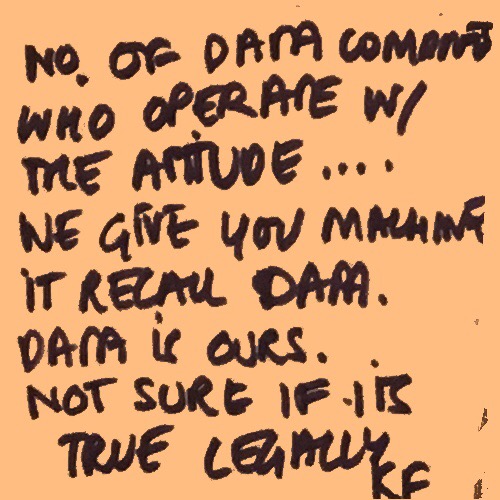 NO. OF DATA
WHO OPERATE W/
THE ATTITUDE ....
WE GIVE YOU MACHINE
IT RECALL DATA.
DATA IS OURS.
NOT SURE IF IT'S
TRUE LEGALLY
KF